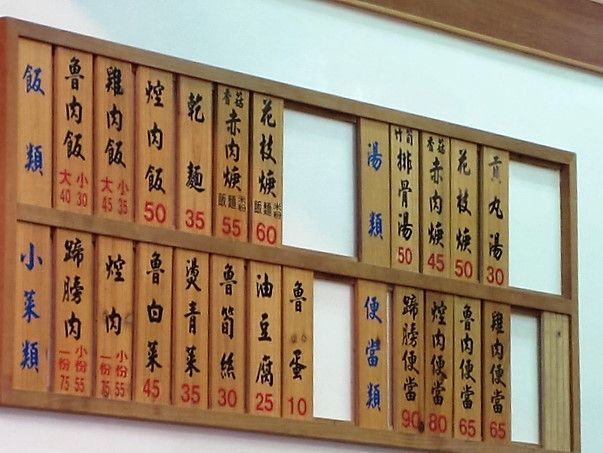 飯類
魯肉飯 大40 小30
雞肉飯 大45 小35
焢肉飯 50
乾麵 35
香菇赤肉焿 飯麵米粉 55
花枝焿 飯麵米粉 60
湯類
竹筍排骨湯 50
香菇赤肉焿 45
花枝焿 50
貢丸湯 30
小菜類
蹄膀肉 一份75 小份55
焢肉 一份75 小份55
魯白菜 45
燙青菜 35
魯筍絲 30
油豆腐 25
魯蛋 10
便當類
蹄膀便當 90
焢肉便當 80
魯肉便當 65
雞肉便當 65